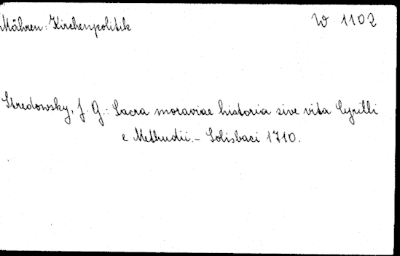 Mähren: Kirchenpolitik
W 1102
Stredowsky, J. G.: Sacra moraviae historia sive vita Cyrilli
e Methudii. - Solisbaci 1710.